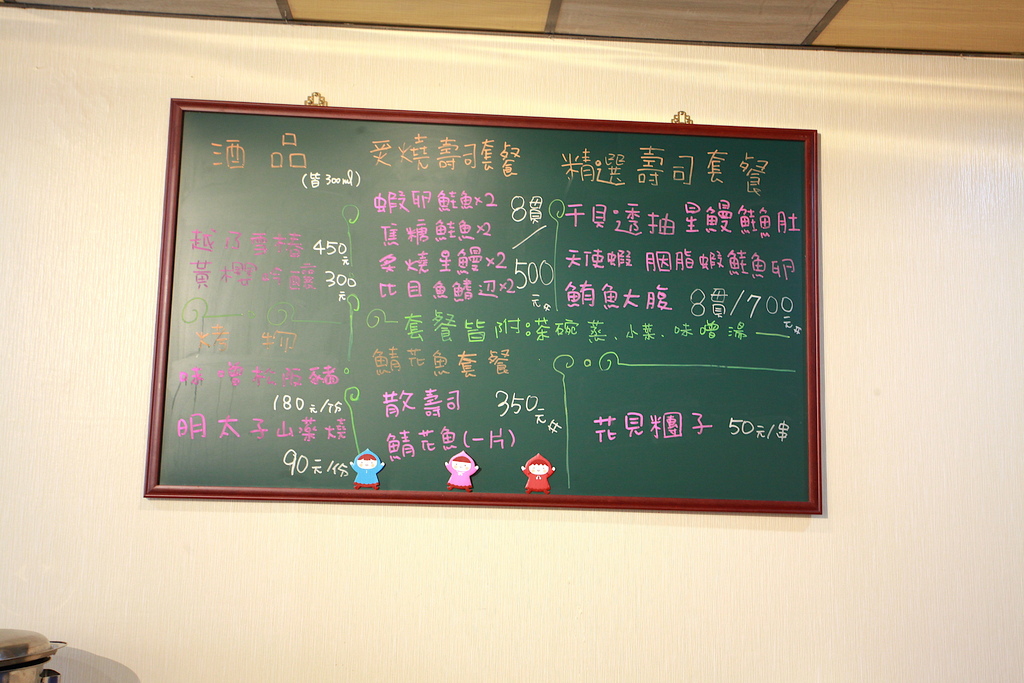 酒品
(皆300ml)
450元
黃櫻吟釀 300元
烤物
味噌松阪豬
180元/份
明太子山藥燒
90元/份
炙燒壽司套餐
蝦卵鮭魚x2
焦糖鮭魚x2
炙燒星鰻x2
比目魚鰭边x2
8貫/500元
套餐皆附:茶碗蒸、小菜、味噌湯
鯖花魚套餐
散壽司
鯖花魚(一片)
350元
精選壽司套餐
干貝透抽星鰻鮭魚肚
天使蝦 胭脂蝦鮭魚卵
鮪魚大腹 8貫/700元
花見糰子 50元/串